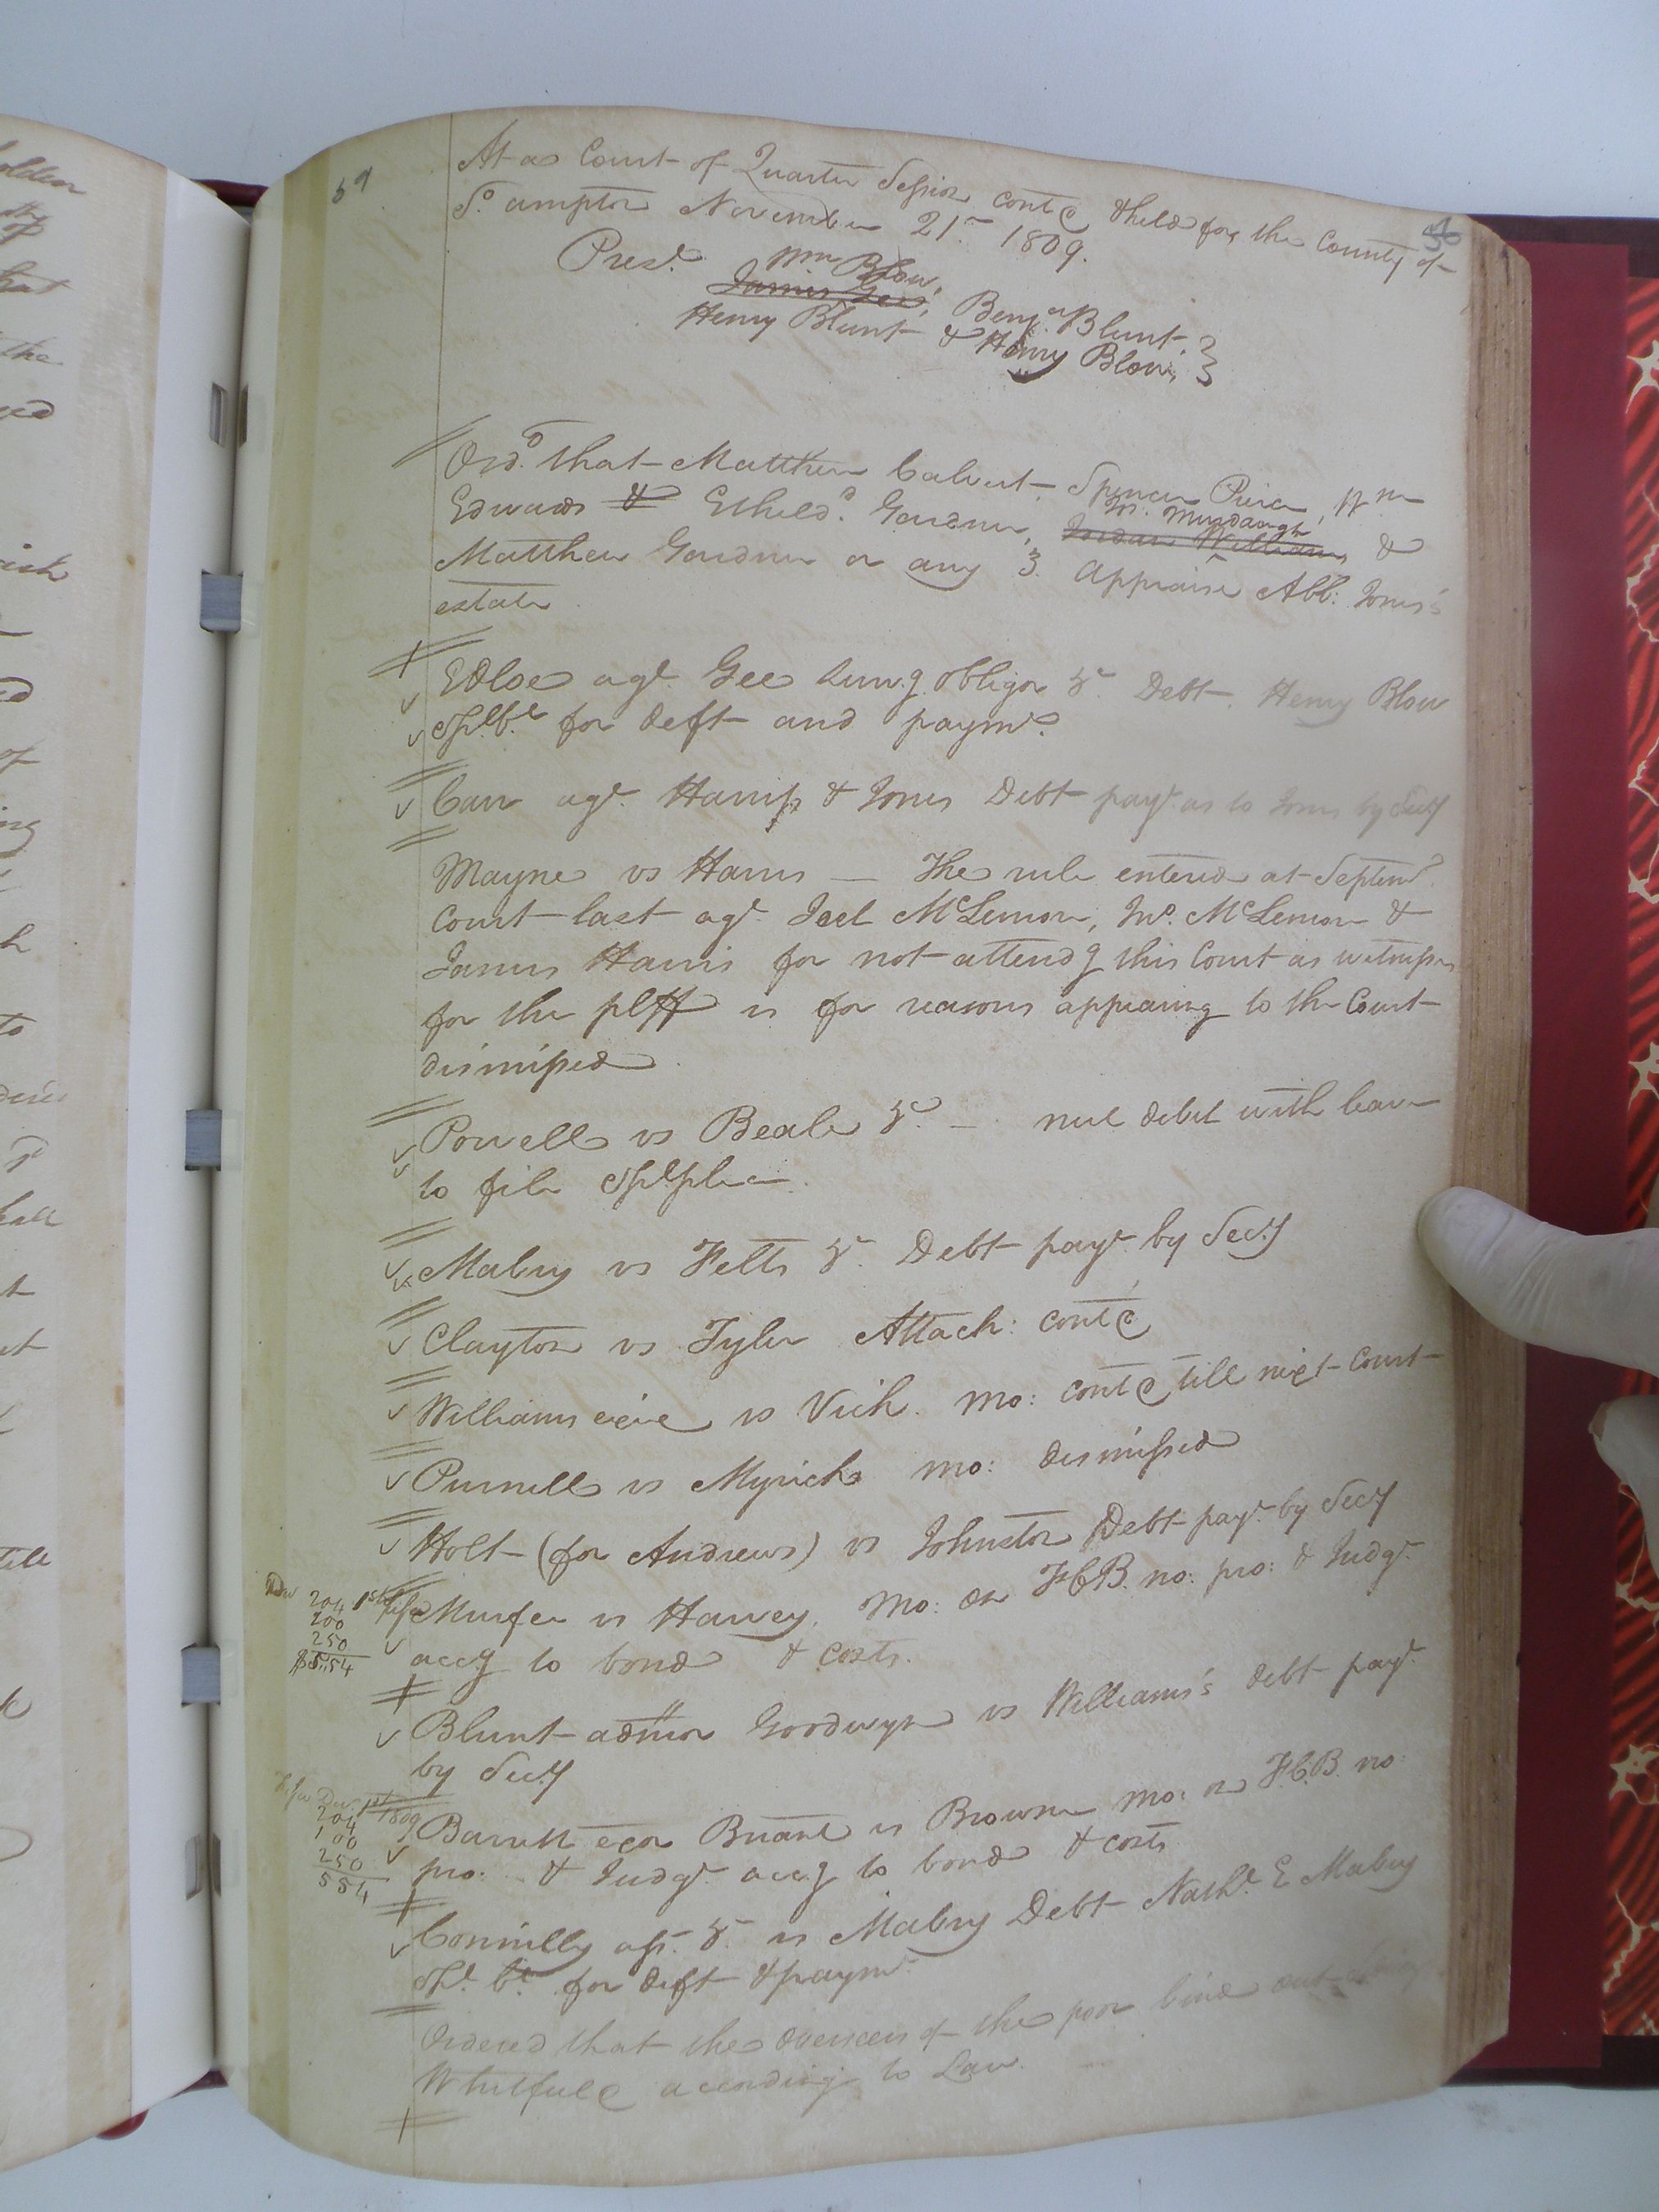 59
At a Court of Quarter Session contd & held for the County of
So. ampton November 21st 1809.
Prest. Wm Blow,
James Gee, Benja Blunt,
Henry Blunt & Henry Blow,
Ord. that Matthew Calvert, Spencer Pierce, Wm
Edwards & Etheld. Gardner, Jordan Williams Jno. Murdaugh &
Matthew Gardner or any 3. appraise Abb: Jones's
estate
Edloe agt. Gee surv.g obligor &c. Debt. Henry Blow
Spl. bl. for deft and paymt.
Carr agt. Harris & Jones Debt payt as to Jones by Secy
Mayne vs Harris — The rule entered at Septem.
Court last agt. Joel McLemore, Jno. McLemore &
James Harris for not attendg this Court as witnesses
for the plff is for reasons appearing to the Court
dismissed
Powell vs Beale &c. — nil debet with leave
to file Spl plea
Mabry vs Felts &c. Debt payt. by Secy
Clayton vs Tyler Attach: contd
Williams exix vs Vick. Mo: contd till next Court
Purnell vs Myrick Mo: dismissed
Holt (for Andrews) vs Johnston Debt payt. by Secy
204
200
250
$5..54
Murfee vs Harvey. Mo: on F.C.B. no: pro: & Judgt.
accg to bond & costs.
Blunt admor Goodwyn vs Williams's debt payt.
by Secy
Dec. 1st 1809
204
100
250
554
Barrett exor Briant vs Browne Mo: on F.C.B. no
pro: & Judgt. accg to bond & costs
Connilly ass. &c. vs Mabry Debt Nathl. E Mabry
Spl. bl. for deft & paymt
Ordered that the overseers of the poor bind out
Whitfield according to Law.